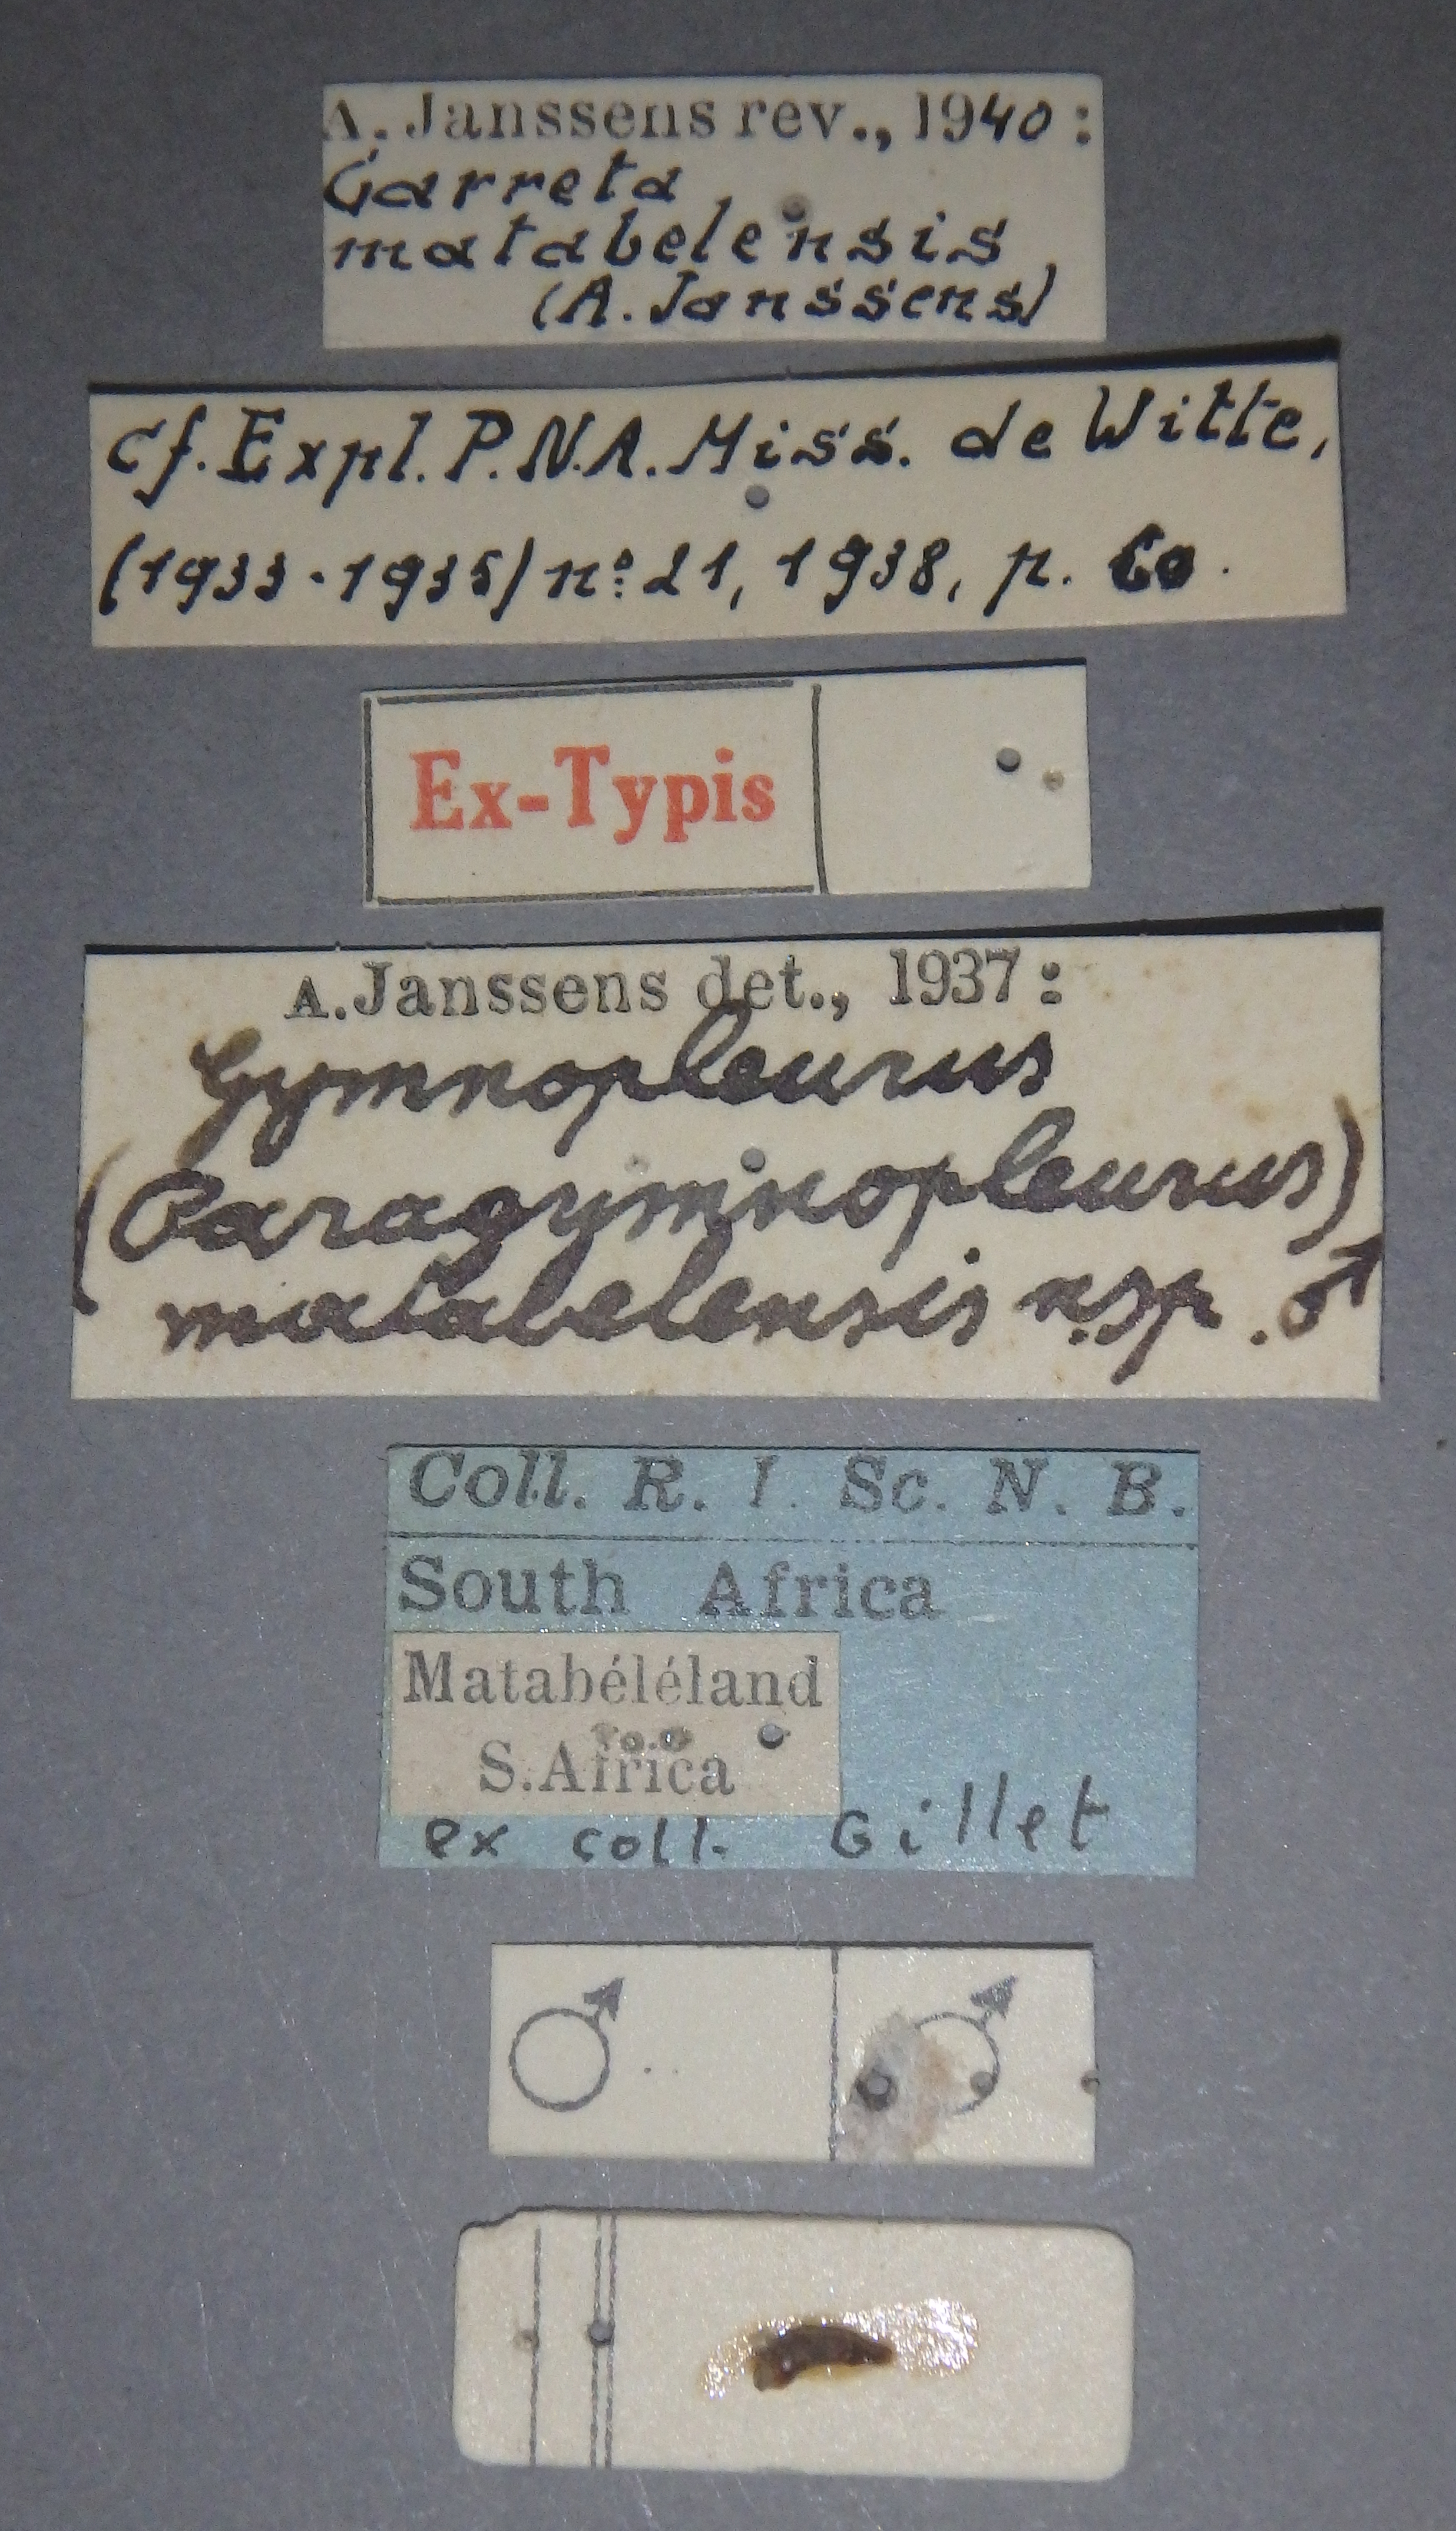 A. Janssens rev., 1940 :
Garreta
matabelensis
(A. Janssens)
cf. Expl. P.N.A. Miss. de Witte,
(1933-1935) nº 21, 1938, p. 60.
Ex-Typis
A. Janssens det., 1937 :
Gymnopleurus
(Paragymnopleurus)
matabelensis n.sp. ♂
Coll. R. I. Sc. N. B.
South Africa
Matabéléland
S. Africa
ex coll. Gillet
♂ ♂